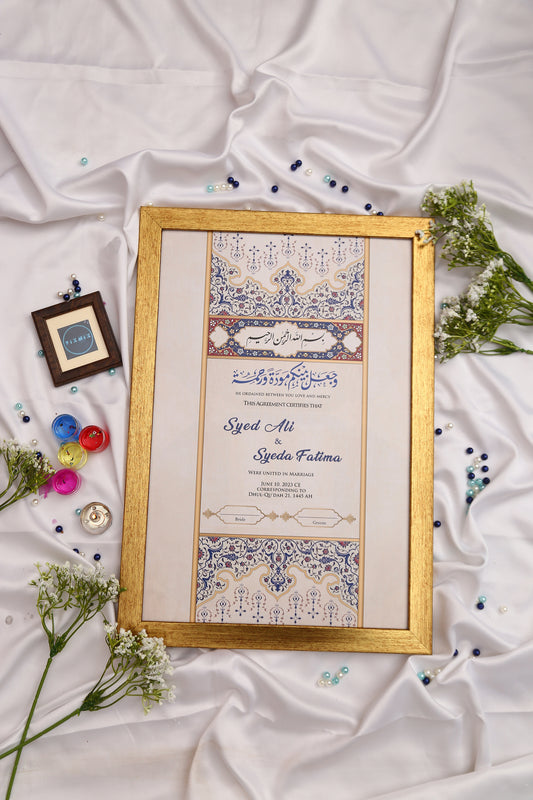 بسم الله الرحمن الرحيم
وجعل بينكم مودة ورحمة
He ordained between you love and mercy
This Agreement certifies that
Syed Ali
&
Syeda Fatima
Were united in Marriage
June 10, 2023 CE
corresponding to
Dhul-Qu'dah 21, 1445 AH
Bride
Groom